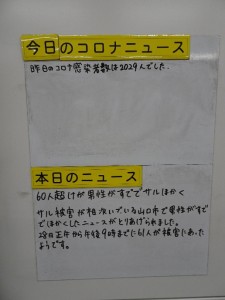 今日のコロナニュース
昨日のコロナ感染者数は2029人でした。
本日のニュース
60人超けが男性がすででサルほかく
サル被害が相次いでいる山口市で男性がすで
でほかくしたニュースがとりあげられました。
28日正午から午後9時までに61人が被害にあった
ようです。